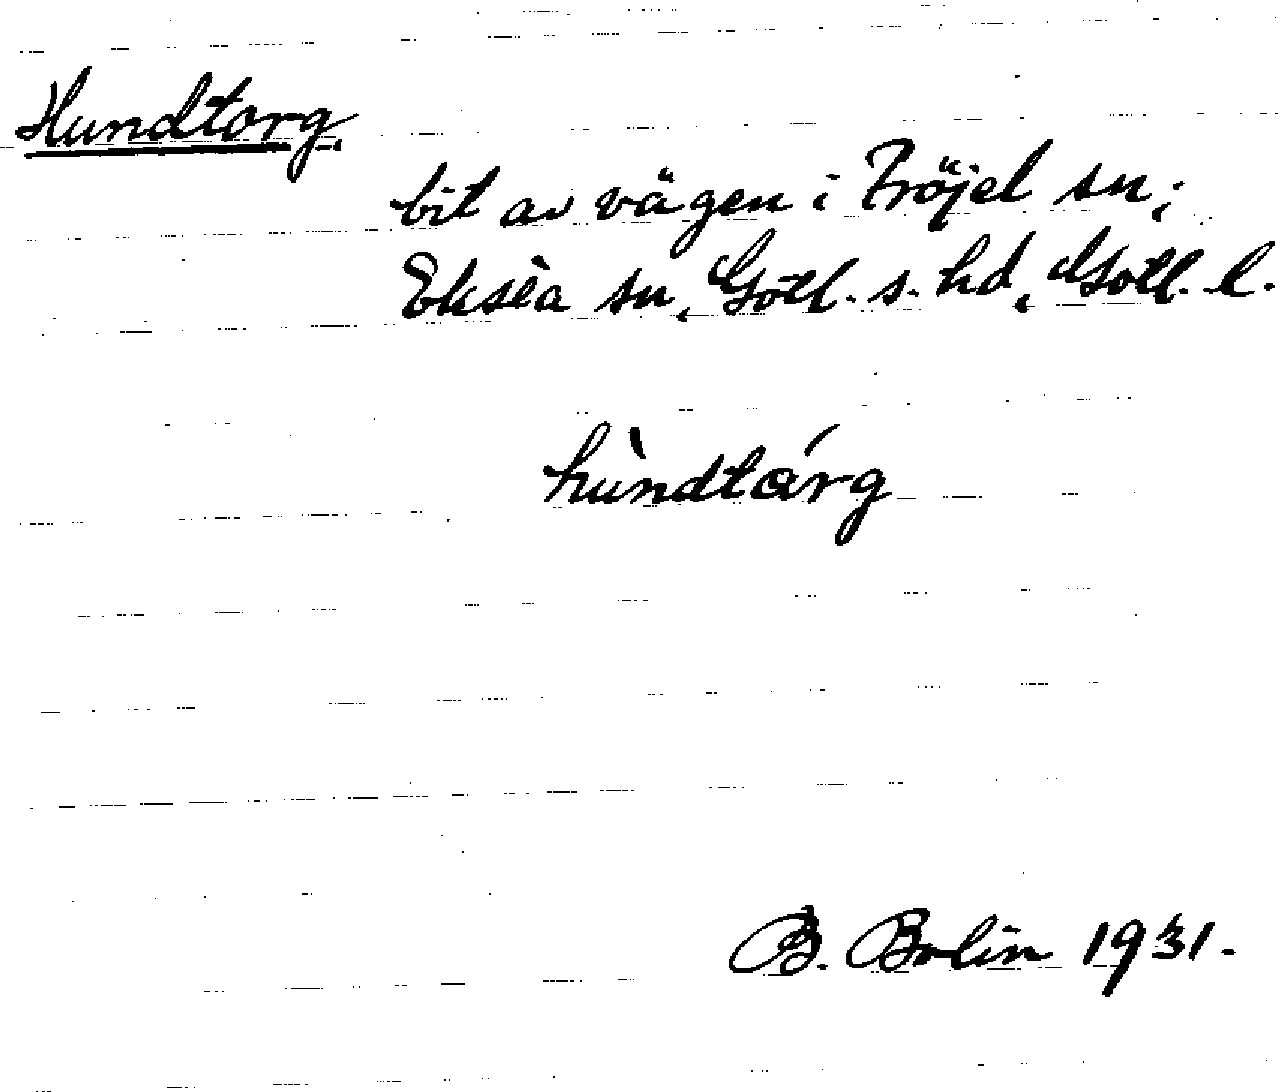 Hundtorg,
bit av vägen i Fröjel sn;
Eksta sn, Gotl. s. hd, Gotl. l.
hùndtárg
B. Bolin 1931.